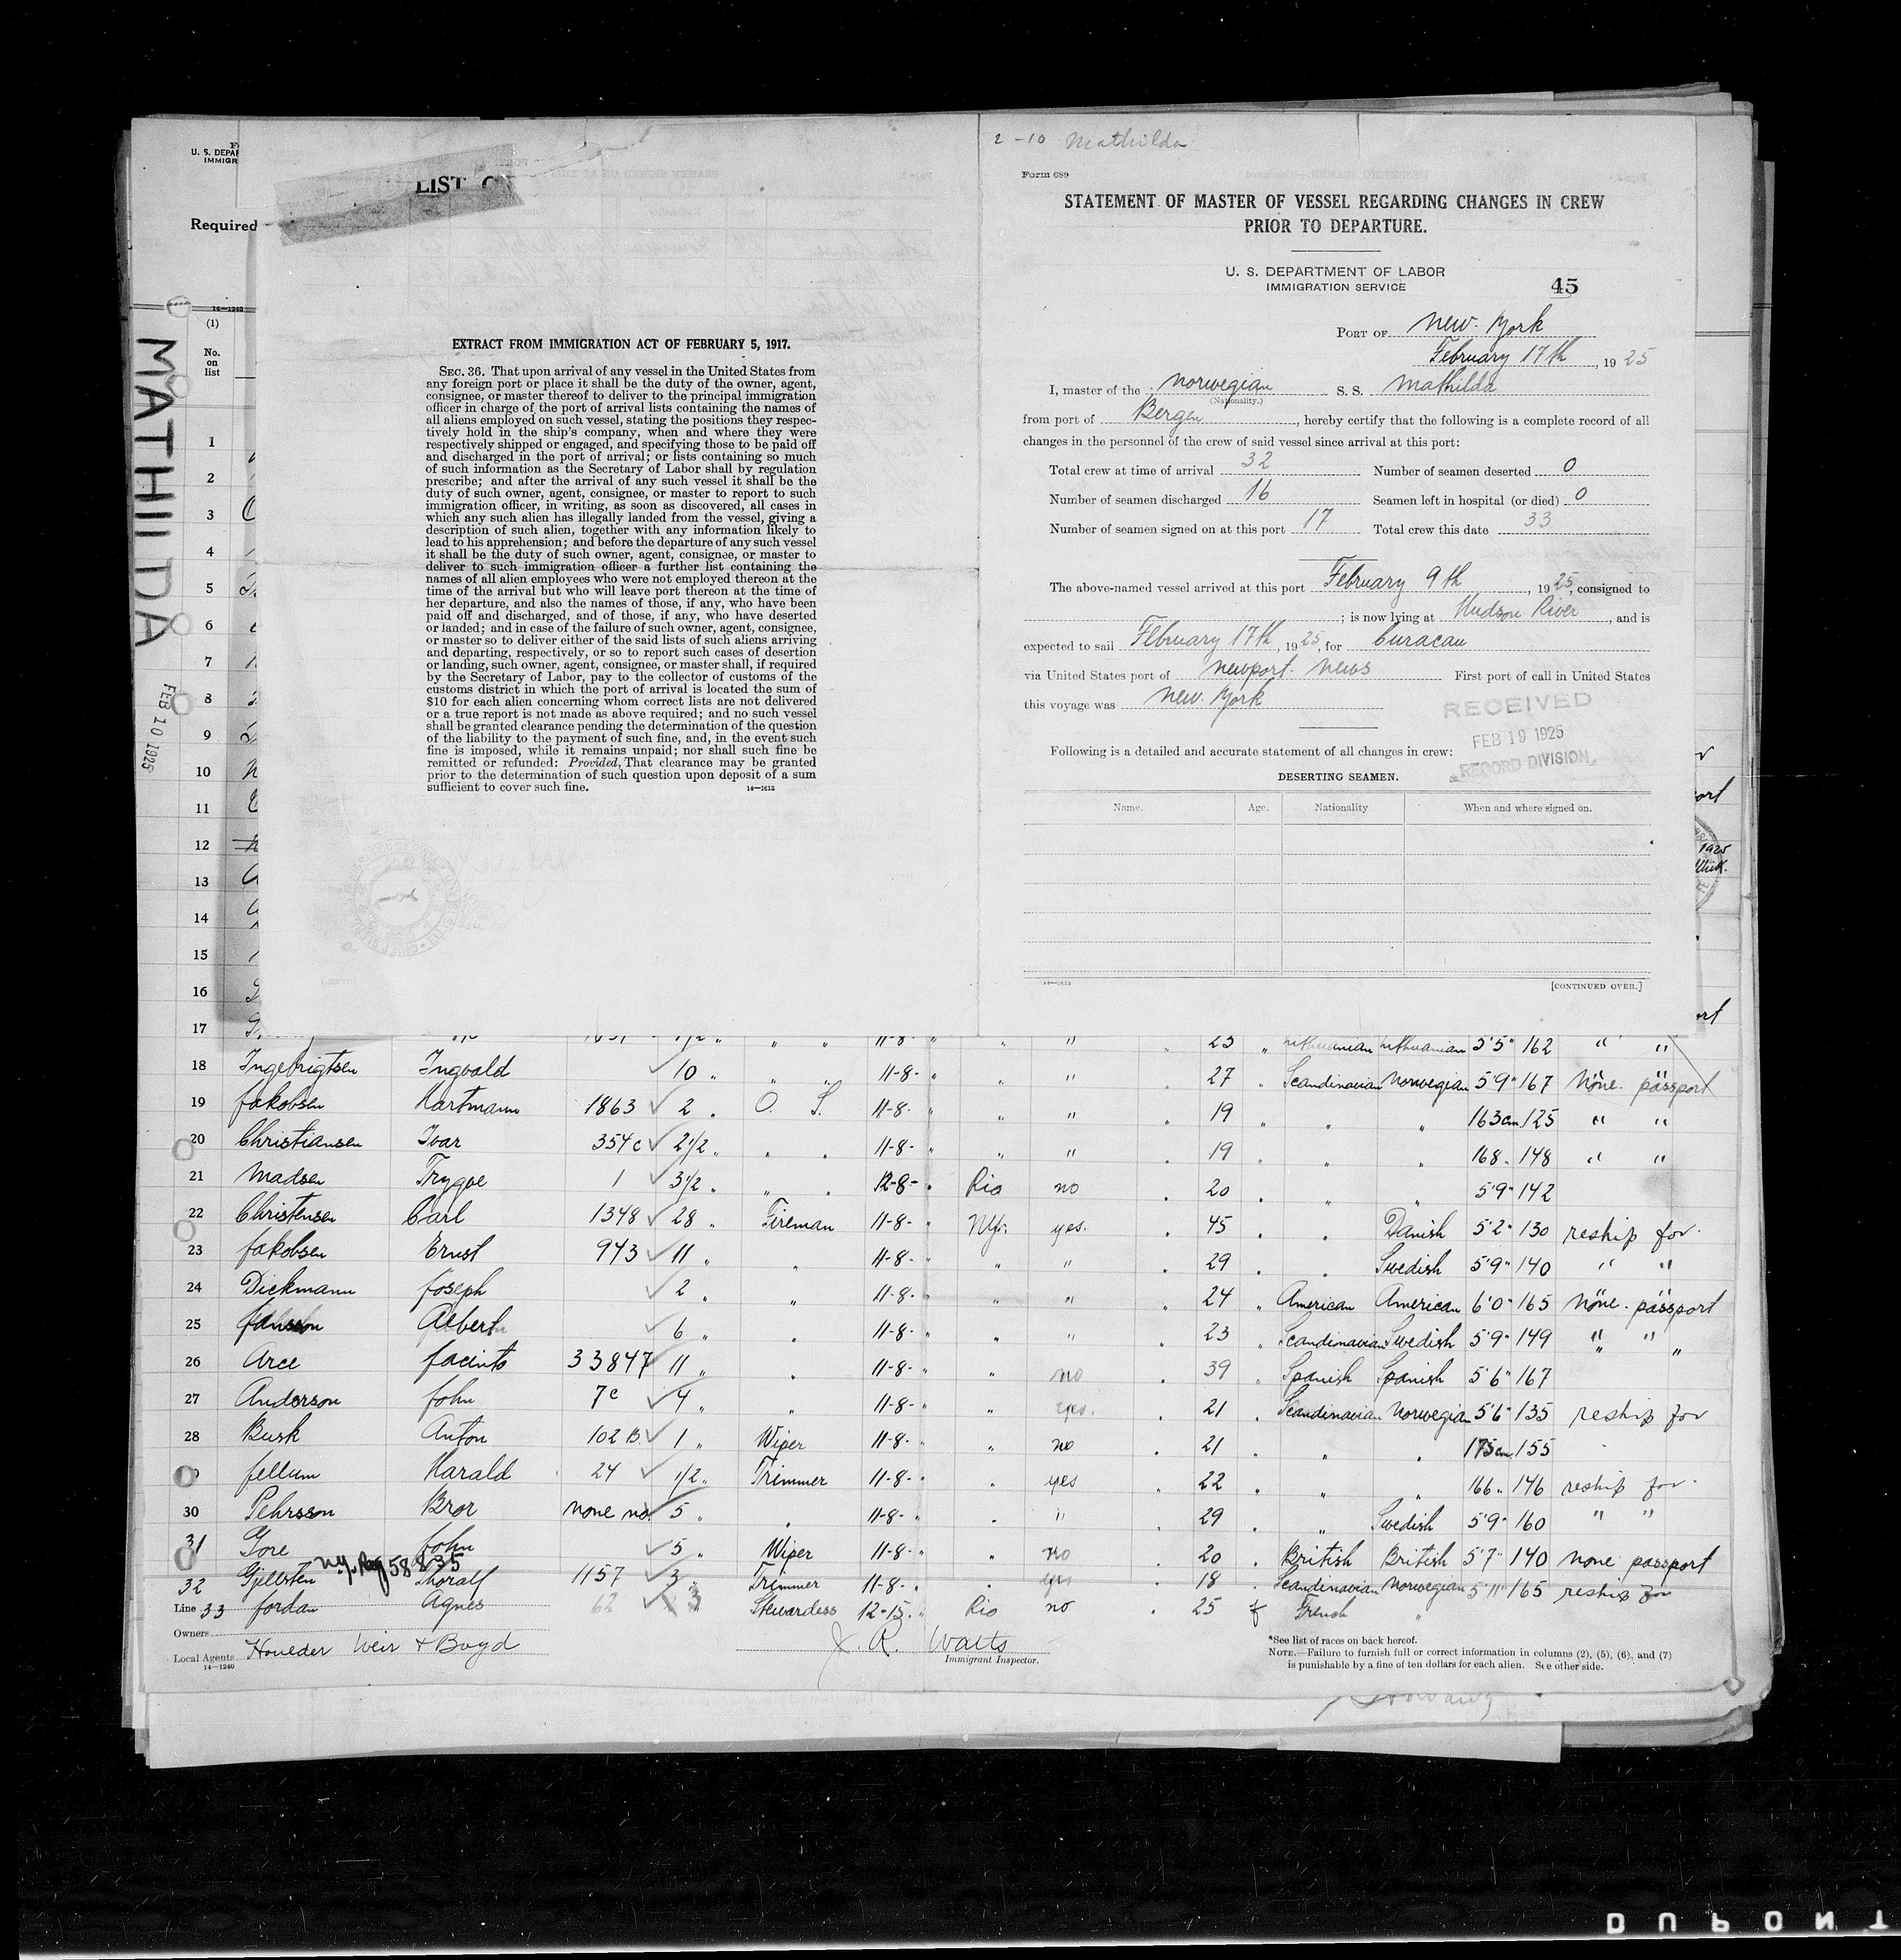 U. S. DEPAR
IMMIGR
LIST O
Required
14—1240
(1)
No.
on
list
MATHILDA
FEB 10 1925
1
2
3
4
5
6
7
8
9
10
11
12
13
14
15
16
17
EXTRACT FROM IMMIGRATION ACT OF FEBRUARY 5, 1917.
SEC. 36. That upon arrival of any vessel in the United States from
any foreign port or place it shall be the duty of the owner, agent,
consignee, or master thereof to deliver to the principal immigration
officer in charge of the port of arrival lists containing the names of
all aliens employed on such vessel, stating the positions they respec-
tively hold in the ship's company, when and where they were
respectively shipped or engaged, and specifying those to be paid off
and discharged in the port of arrival; or lists containing so much
of such information as the Secretary of Labor shall by regulation
prescribe; and after the arrival of any such vessel it shall be the
duty of such owner, agent, consignee, or master to report to such
immigration officer, in writing, as soon as discovered, all cases in
which any such alien has illegally landed from the vessel, giving a
description of such alien, together with any information likely to
lead to his apprehension; and before the departure of any such vessel
it shall be the duty of such owner, agent, consignee, or master to
deliver to such immigration officer a further list containing the
names of all alien employees who were not employed thereon at the
time of the arrival but who will leave port thereon at the time of
her departure, and also the names of those, if any, who have been
paid off and discharged, and of those, if any, who have deserted
or landed; and in case of the failure of such owner, agent, consignee,
or master so to deliver either of the said lists of such aliens arriving
and departing, respectively, or so to report such cases of desertion
or landing, such owner, agent, consignee, or master shall, if required
by the Secretary of Labor, pay to the collector of customs of the
customs district in which the port of arrival is located the sum of
$10 for each alien concerning whom correct lists are not delivered
or a true report is not made as above required; and no such vessel
shall be granted clearance pending the determination of the question
of the liability to the payment of such fine, and, in the event such
fine is imposed, while it remains unpaid; nor shall such fine be
remitted or refunded: Provided, That clearance may be granted
prior to the determination of such question upon deposit of a sum
sufficient to cover such fine. 14—1613
2 - 10 Mathilda
Form 689
STATEMENT OF MASTER OF VESSEL REGARDING CHANGES IN CREW
PRIOR TO DEPARTURE.
U. S. DEPARTMENT OF LABOR
IMMIGRATION SERVICE
45
PORT OF New York
February 17th, 1925
I, master of the Norwegian S. S. Mathilda
(Nationality.)
from port of Bergen, hereby certify that the following is a complete record of all
changes in the personnel of the crew of said vessel since arrival at this port:
Total crew at time of arrival 32 Number of seamen deserted 0
Number of seamen discharged 16 Seamen left in hospital (or died) 0
Number of seamen signed on at this port 17 Total crew this date 33
The above-named vessel arrived at this port February 9th, 1925, consigned to
; is now lying at Hudson River, and is
expected to sail February 17th, 1925, for Curacau
via United States port of Newport News First port of call in United States
this voyage was New York
RECEIVED
FEB 19 1925
RECORD DIVISION
Following is a detailed and accurate statement of all changes in crew:
DESERTING SEAMEN.
Name. Age. Nationality When and where signed on.
14—1613 [CONTINUED OVER.]
23 " Lithuanian Lithuanian 5'5" 162 " "
18 Ingebrigtsen Ingvald 10 " " " 11-8- " " " 27 " Scandinavian Norwegian 5'9" 167 none passport
19 Jakobsen Hartmann 1863 2 " O. S. 11-8- " " " 19 " " " 163cm 125 " "
20 Christiansen Ivar 354c 2 1/2 " " " 11-8- " " " 19 " " " 168 " 148 " "
21 Madsen Trygve 1 3 1/2 " " " 12-8- " Rio no 20 " " " 5'9" 142
22 Christensen Carl 1348 28 " Fireman 11-8- " NY. yes. 45 " " Danish 5'2" 130 reship for
23 Jakobsen Ernst 943 11 " " 11-8- " " " 29 " " Swedish 5'9" 140 " "
24 Dickmann Joseph 2 " " 11-8- " " " 24 " American American 6'0" 165 none passport
25 Jansson Albert 6 " " 11-8- " " " 23 " Scandinavian Swedish 5'9" 149 " "
26 Arce Jacinto 33847 11 " " 11-8- " " no 39 " Spanish Spanish 5'6" 167
27 Anderson John 7c 4 " " 11-8- " " yes. 21 " Scandinavian Norwegian 5'6" 135 reship for
28 Busk Anton 102 B. 1 " Wiper 11-8- " " no 21 " " " 175cm 155
Jellum Harald 24 1/2 " Trimmer 11-8- " " yes 22 " " " 166 " 146 reship for
30 Pehrsson Bror none no. 5 " " 11-8- " " " 29 " " Swedish 5'9" 160 " "
31 Gore John 5 " Wiper 11-8- " " no 20 " British British 5'7" 140 none passport
N.Y. Reg 58835
32 Gjellsten Thoralf 1157 3 " Trimmer 11-8- " " yes 18 " Scandinavian Norwegian 5'11" 165 reship for
Line 33 Jordan Agnes 62 3 Stewardess 12-15 " Rio no 25 f French "
Owners
Local Agents Houlder Weir & Boyd J. R. Watts
14—1240 Immigrant Inspector.
*See list of races on back hereof.
NOTE.—Failure to furnish full or correct information in columns (2), (5), (6), and (7)
is punishable by a fine of ten dollars for each alien. See other side.
DUPONT